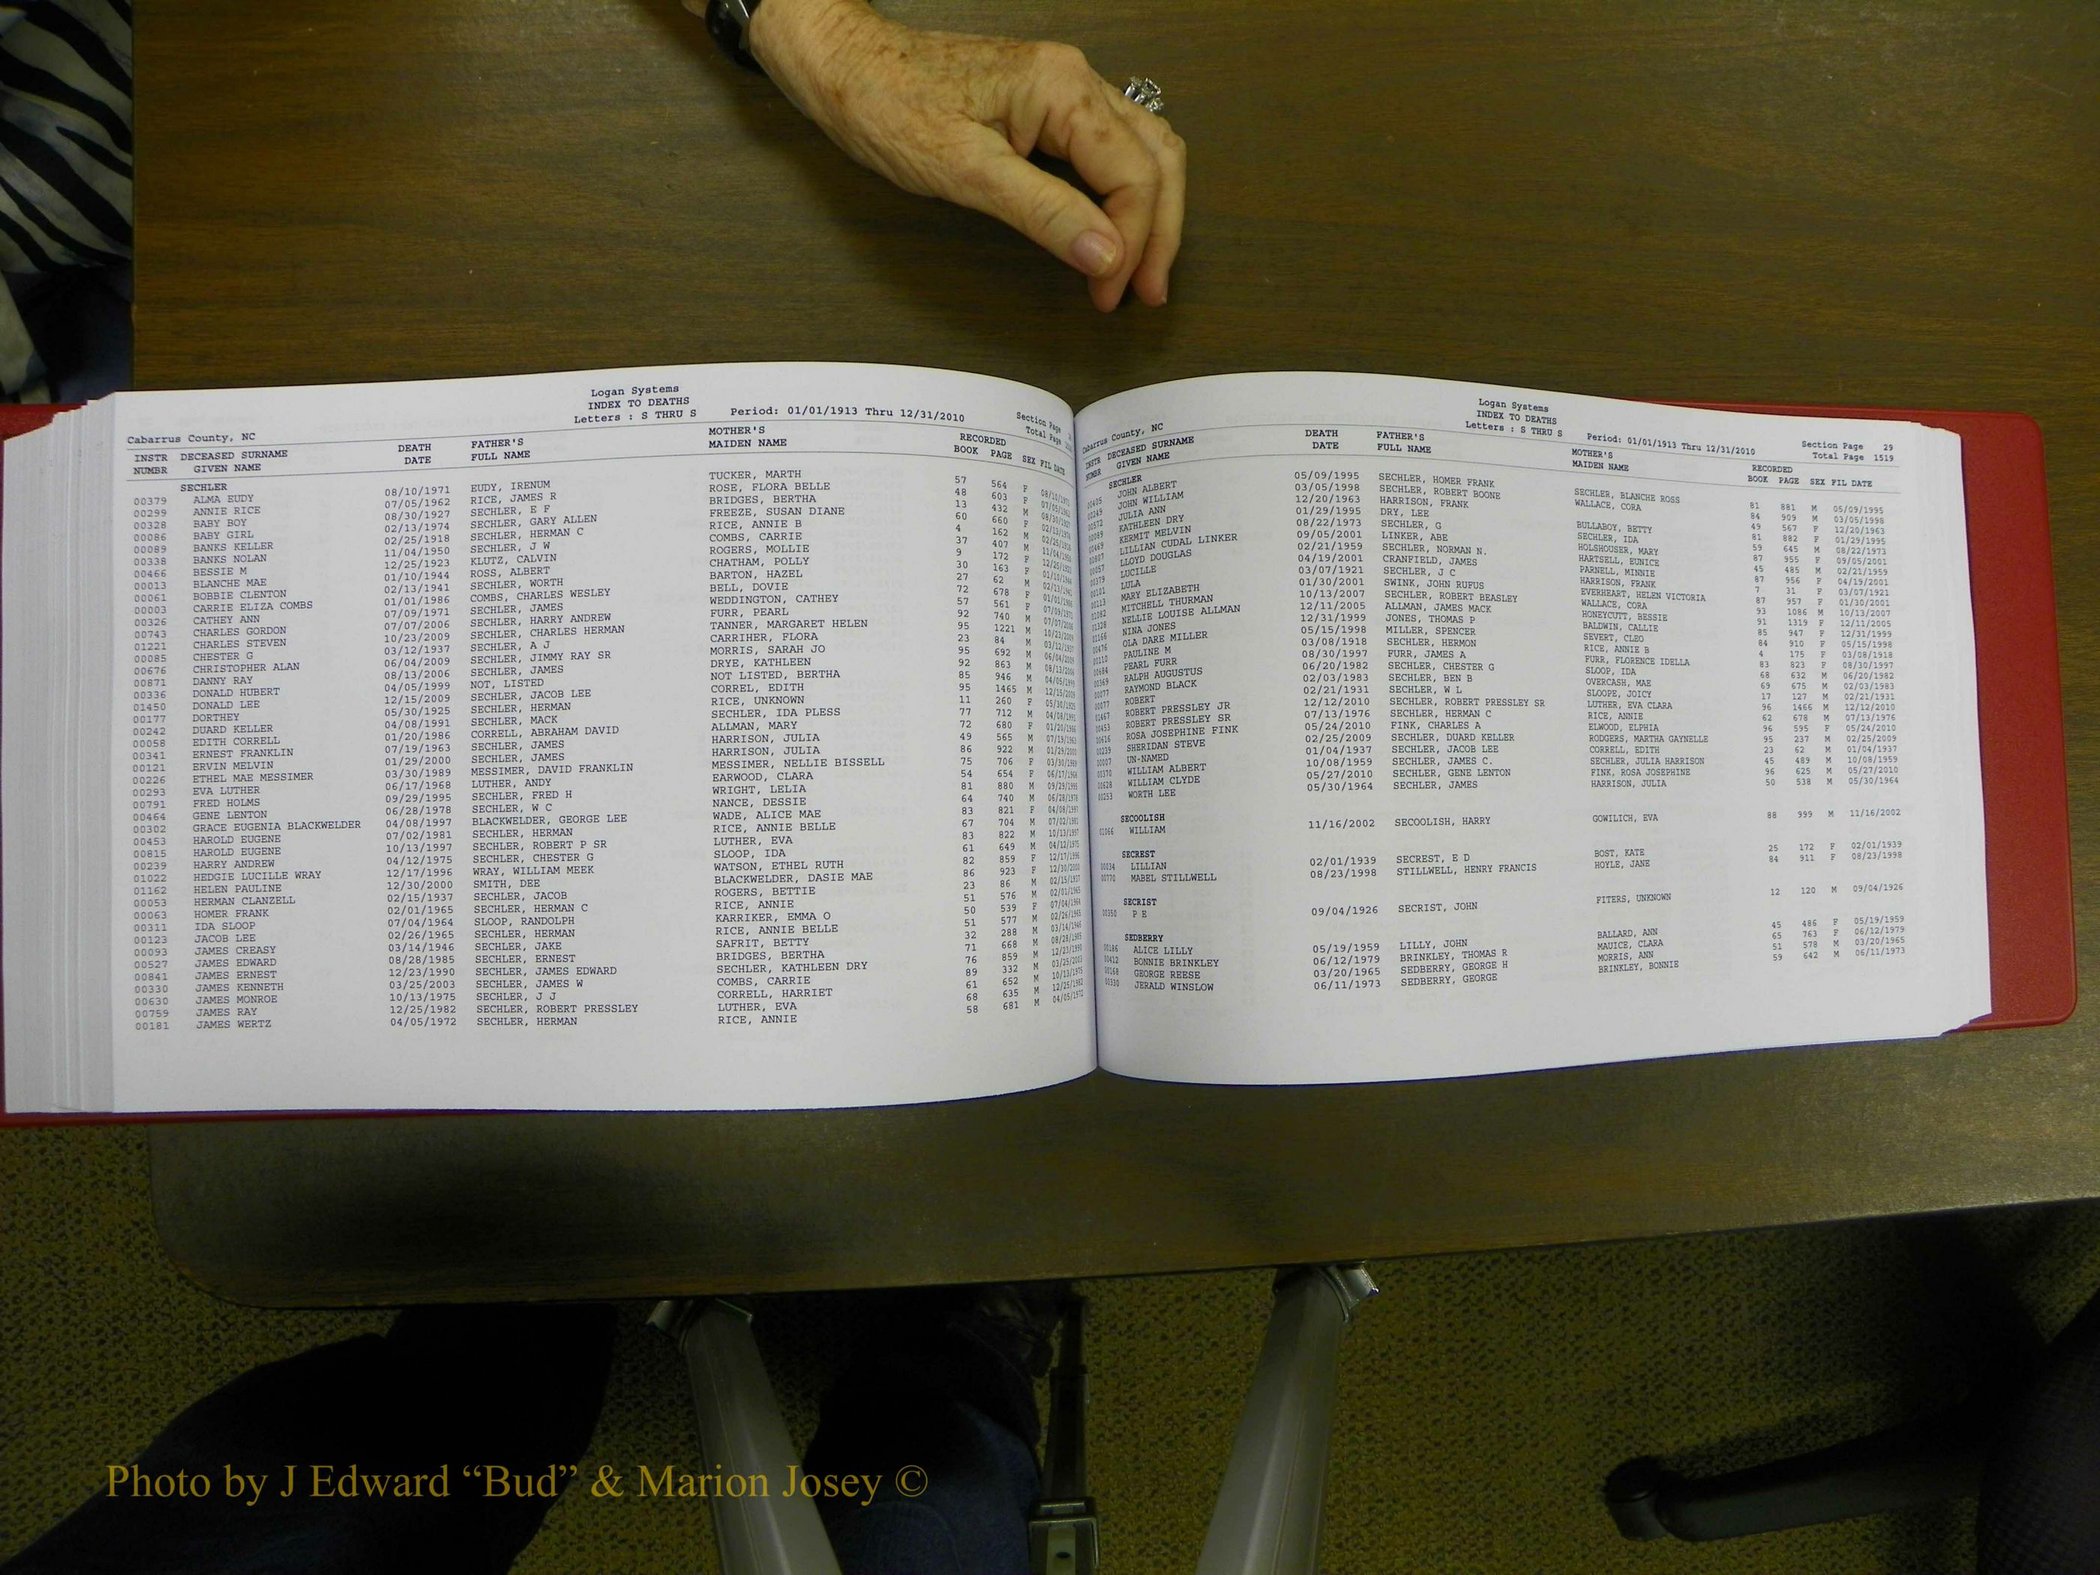 Logan Systems
INDEX TO DEATHS
Letters : S THRU S Period: 01/01/1913 Thru 12/31/2010 Section Page
Cabarrus County, NC Total Page
INSTR DECEASED SURNAME DEATH FATHER'S MOTHER'S RECORDED
NUMBR GIVEN NAME DATE FULL NAME MAIDEN NAME BOOK PAGE SEX FIL DATE
SECHLER
00379 ALMA EUDY 08/10/1971 EUDY, IRENUM TUCKER, MARTH 57 564 F
00299 ANNIE RICE 07/05/1962 RICE, JAMES R ROSE, FLORA BELLE 48 603 F
00328 BABY BOY 08/30/1927 SECHLER, E F BRIDGES, BERTHA 13 432 M
00086 BABY GIRL 02/13/1974 SECHLER, GARY ALLEN FREEZE, SUSAN DIANE 60 660 F
00089 BANKS KELLER 02/25/1918 SECHLER, HERMAN C RICE, ANNIE B 4 162 M
00338 BANKS NOLAN 11/04/1950 SECHLER, J W COMBS, CARRIE 37 407 M
00466 BESSIE M 12/25/1923 KLUTZ, CALVIN ROGERS, MOLLIE 9 172 F
00013 BLANCHE MAE 01/10/1944 ROSS, ALBERT CHATHAM, POLLY 30 163 F
00061 BOBBIE CLENTON 02/13/1941 SECHLER, WORTH BARTON, HAZEL 27 62 M
00003 CARRIE ELIZA COMBS 01/01/1986 COMBS, CHARLES WESLEY BELL, DOVIE 72 678 F
00326 CATHEY ANN 07/09/1971 SECHLER, JAMES WEDDINGTON, CATHEY 57 561 F
00743 CHARLES GORDON 07/07/2006 SECHLER, HARRY ANDREW FURR, PEARL 92 740 M
01221 CHARLES STEVEN 10/23/2009 SECHLER, CHARLES HERMAN TANNER, MARGARET HELEN 95 1221 M
00085 CHESTER G 03/12/1937 SECHLER, A J CARRIHER, FLORA 23 84 M
00676 CHRISTOPHER ALAN 06/04/2009 SECHLER, JIMMY RAY SR MORRIS, SARAH JO 95 692 M
00871 DANNY RAY 08/13/2006 SECHLER, JAMES DRYE, KATHLEEN 92 863 M
00336 DONALD HUBERT 04/05/1999 NOT, LISTED NOT LISTED, BERTHA 85 946 M
01450 DONALD LEE 12/15/2009 SECHLER, JACOB LEE CORREL, EDITH 95 1465 M
00177 DORTHEY 05/30/1925 SECHLER, HERMAN RICE, UNKNOWN 11 260 F
00242 DUARD KELLER 04/08/1991 SECHLER, MACK SECHLER, IDA PLESS 77 712 M
00058 EDITH CORRELL 01/20/1986 CORRELL, ABRAHAM DAVID ALLMAN, MARY 72 680 F
00341 ERNEST FRANKLIN 07/19/1963 SECHLER, JAMES HARRISON, JULIA 49 565 M
00121 ERVIN MELVIN 01/29/2000 SECHLER, JAMES HARRISON, JULIA 86 922 M
00226 ETHEL MAE MESSIMER 03/30/1989 MESSIMER, DAVID FRANKLIN MESSIMER, NELLIE BISSELL 75 706 F
00293 EVA LUTHER 06/17/1968 LUTHER, ANDY EARWOOD, CLARA 54 654 F
00791 FRED HOLMS 09/29/1995 SECHLER, FRED H WRIGHT, LELIA 81 880 M
00464 GENE LENTON 06/28/1978 SECHLER, W C NANCE, DESSIE 64 740 M
00302 GRACE EUGENIA BLACKWELDER 04/08/1997 BLACKWELDER, GEORGE LEE WADE, ALICE MAE 83 821 F
00453 HAROLD EUGENE 07/02/1981 SECHLER, HERMAN RICE, ANNIE BELLE 67 704 M
00815 HAROLD EUGENE 10/13/1997 SECHLER, ROBERT P SR LUTHER, EVA 83 822 M
00239 HARRY ANDREW 04/12/1975 SECHLER, CHESTER G SLOOP, IDA 61 649 M
01022 HEDGIE LUCILLE WRAY 12/17/1996 WRAY, WILLIAM MEEK WATSON, ETHEL RUTH 82 859 F
01162 HELEN PAULINE 12/30/2000 SMITH, DEE BLACKWELDER, DASIE MAE 86 923 F
00053 HERMAN CLANZELL 02/15/1937 SECHLER, JACOB ROGERS, BETTIE 23 86 M
00063 HOMER FRANK 02/01/1965 SECHLER, HERMAN C RICE, ANNIE 51 576 M
00311 IDA SLOOP 07/04/1964 SLOOP, RANDOLPH KARRIKER, EMMA O 50 539 F
00123 JACOB LEE 02/26/1965 SECHLER, HERMAN RICE, ANNIE BELLE 51 577 M
00093 JAMES CREASY 03/14/1946 SECHLER, JAKE SAFRIT, BETTY 32 288 M
00527 JAMES EDWARD 08/28/1985 SECHLER, ERNEST BRIDGES, BERTHA 71 668 M
00841 JAMES ERNEST 12/23/1990 SECHLER, JAMES EDWARD SECHLER, KATHLEEN DRY 76 859 M
00330 JAMES KENNETH 03/25/2003 SECHLER, JAMES W COMBS, CARRIE 89 332 M
00630 JAMES MONROE 10/13/1975 SECHLER, J J CORRELL, HARRIET 61 652 M
00759 JAMES RAY 12/25/1982 SECHLER, ROBERT PRESSLEY LUTHER, EVA 68 635 M
00181 JAMES WERTZ 04/05/1972 SECHLER, HERMAN RICE, ANNIE 58 681 M
Logan Systems
INDEX TO DEATHS
Letters : S THRU S Period: 01/01/1913 Thru 12/31/2010 Section Page 29
Cabarrus County, NC Total Page 1519
INSTR DECEASED SURNAME DEATH FATHER'S MOTHER'S RECORDED
NUMBR GIVEN NAME DATE FULL NAME MAIDEN NAME BOOK PAGE SEX FIL DATE
SECHLER
JOHN ALBERT 05/09/1995 SECHLER, HOMER FRANK SECHLER, BLANCHE ROSS 81 881 M 05/09/1995
JOHN WILLIAM 03/05/1998 SECHLER, ROBERT BOONE WALLACE, CORA 84 909 M 03/05/1998
JULIA ANN 12/20/1963 HARRISON, FRANK 49 567 F 12/20/1963
KATHLEEN DRY 01/29/1995 DRY, LEE BULLABOY, BETTY 81 882 F 01/29/1995
KERMIT MELVIN 08/22/1973 SECHLER, G SECHLER, IDA 59 645 M 08/22/1973
LILLIAN CUDAL LINKER 09/05/2001 LINKER, ABE HOLSHOUSER, MARY 87 955 F 09/05/2001
LLOYD DOUGLAS 02/21/1959 SECHLER, NORMAN N. HARTSELL, EUNICE 45 485 M 02/21/1959
LUCILLE 04/19/2001 CRANFIELD, JAMES PARNELL, MINNIE 87 956 F 04/19/2001
LULA 03/07/1921 SECHLER, J C HARRISON, FRANK 7 31 F 03/07/1921
MARY ELIZABETH 01/30/2001 SWINK, JOHN RUFUS EVERHEART, HELEN VICTORIA 87 957 F 01/30/2001
MITCHELL THURMAN 10/13/2007 SECHLER, ROBERT BEASLEY WALLACE, CORA 93 1086 M 10/13/2007
NELLIE LOUISE ALLMAN 12/11/2005 ALLMAN, JAMES MACK HONEYCUTT, BESSIE 91 1319 F 12/11/2005
NINA JONES 12/31/1999 JONES, THOMAS P BALDWIN, CALLIE 85 947 F 12/31/1999
OLA DARE MILLER 05/15/1998 MILLER, SPENCER SEVERT, CLEO 84 910 F 05/15/1998
PAULINE M 03/08/1918 SECHLER, HERMON RICE, ANNIE B 4 175 F 03/08/1918
PEARL FURR 08/30/1997 FURR, JAMES A FURR, FLORENCE IDELLA 83 823 F 08/30/1997
RALPH AUGUSTUS 06/20/1982 SECHLER, CHESTER G SLOOP, IDA 68 632 M 06/20/1982
RAYMOND BLACK 02/03/1983 SECHLER, BEN B OVERCASH, MAE 69 675 M 02/03/1983
ROBERT 02/21/1931 SECHLER, W L SLOOPE, JOICY 17 127 M 02/21/1931
ROBERT PRESSLEY JR 12/12/2010 SECHLER, ROBERT PRESSLEY SR LUTHER, EVA CLARA 96 1466 M 12/12/2010
ROBERT PRESSLEY SR 07/13/1976 SECHLER, HERMAN C RICE, ANNIE 62 678 M 07/13/1976
ROSA JOSEPHINE FINK 05/24/2010 FINK, CHARLES A ELWOOD, ELPHIA 96 595 F 05/24/2010
SHERIDAN STEVE 02/25/2009 SECHLER, DUARD KELLER RODGERS, MARTHA GAYNELLE 95 237 M 02/25/2009
UN-NAMED 01/04/1937 SECHLER, JACOB LEE CORRELL, EDITH 23 62 M 01/04/1937
WILLIAM ALBERT 10/08/1959 SECHLER, JAMES C. SECHLER, JULIA HARRISON 45 489 M 10/08/1959
WILLIAM CLYDE 05/27/2010 SECHLER, GENE LENTON FINK, ROSA JOSEPHINE 96 625 M 05/27/2010
WORTH LEE 05/30/1964 SECHLER, JAMES HARRISON, JULIA 50 538 M 05/30/1964
SECOOLISH
01066 WILLIAM 11/16/2002 SECOOLISH, HARRY GOWILICH, EVA 88 999 M 11/16/2002
SECREST
00034 LILLIAN 02/01/1939 SECREST, E D BOST, KATE 25 172 F 02/01/1939
00770 MABEL STILLWELL 08/23/1998 STILLWELL, HENRY FRANCIS HOYLE, JANE 84 911 F 08/23/1998
SECRIST
00350 P E 09/04/1926 SECRIST, JOHN FITERS, UNKNOWN 12 120 M 09/04/1926
SEDBERRY
00186 ALICE LILLY 05/19/1959 LILLY, JOHN BALLARD, ANN 45 486 F 05/19/1959
00412 BONNIE BRINKLEY 06/12/1979 BRINKLEY, THOMAS R MAUICE, CLARA 65 763 F 06/12/1979
00168 GEORGE REESE 03/20/1965 SEDBERRY, GEORGE H MORRIS, ANN 51 578 M 03/20/1965
00330 JERALD WINSLOW 06/11/1973 SEDBERRY, GEORGE BRINKLEY, BONNIE 59 642 M 06/11/1973
Photo by J Edward “Bud” & Marion Josey ©